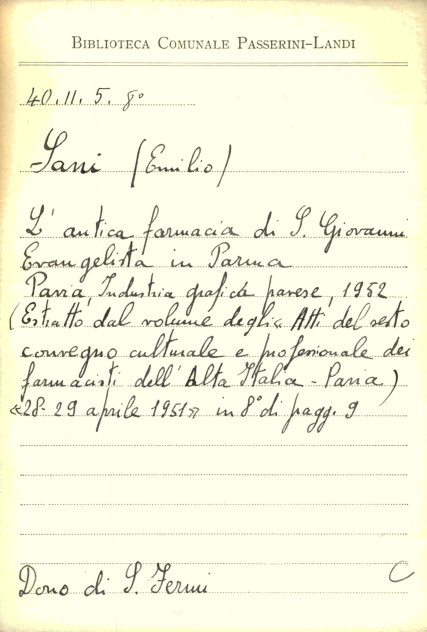 BIBLIOTECA COMUNALE PASSERINI-LANDI
40.11.5. 8°
Sani (Emilio)
L'antica farmacia di S. Giovanni
Evangelista in Parma
Pavia, Industria grafica pavese, 1952
(Estratto dal volume degli « Atti del sesto
convegno culturale e professionale dei
farmacisti dell'Alta Italia - Pavia)
«28-29 aprile 1951» in 8° di pagg. 9
Dono di S. Fermi
C